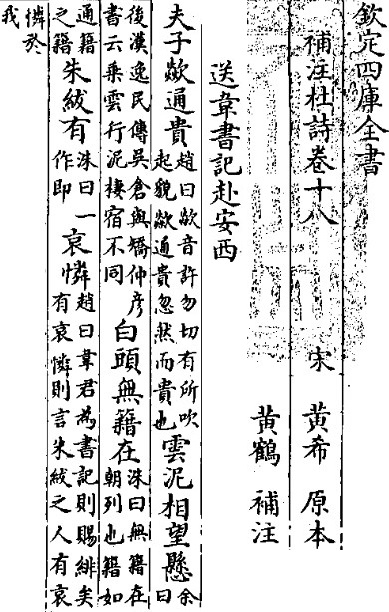 欽定四庫全書
補注杜詩卷十八 宋 黃希 原本
黃鶴 補注
送韋書記赴安西
夫子歘通貴趙曰歘音許勿切有所吹起貌歘通貴忽然而貴也雲泥相望懸余曰
後漢逸民傳吳倉與矯仲彦書云乘雲行泥棲宿不同白頭無籍在洙曰無籍在朝列也籍如
通籍之籍朱紱有洙曰一作即哀憐趙曰韋君為書記則賜緋矣有哀憐則言朱紱之人有哀
憐於我